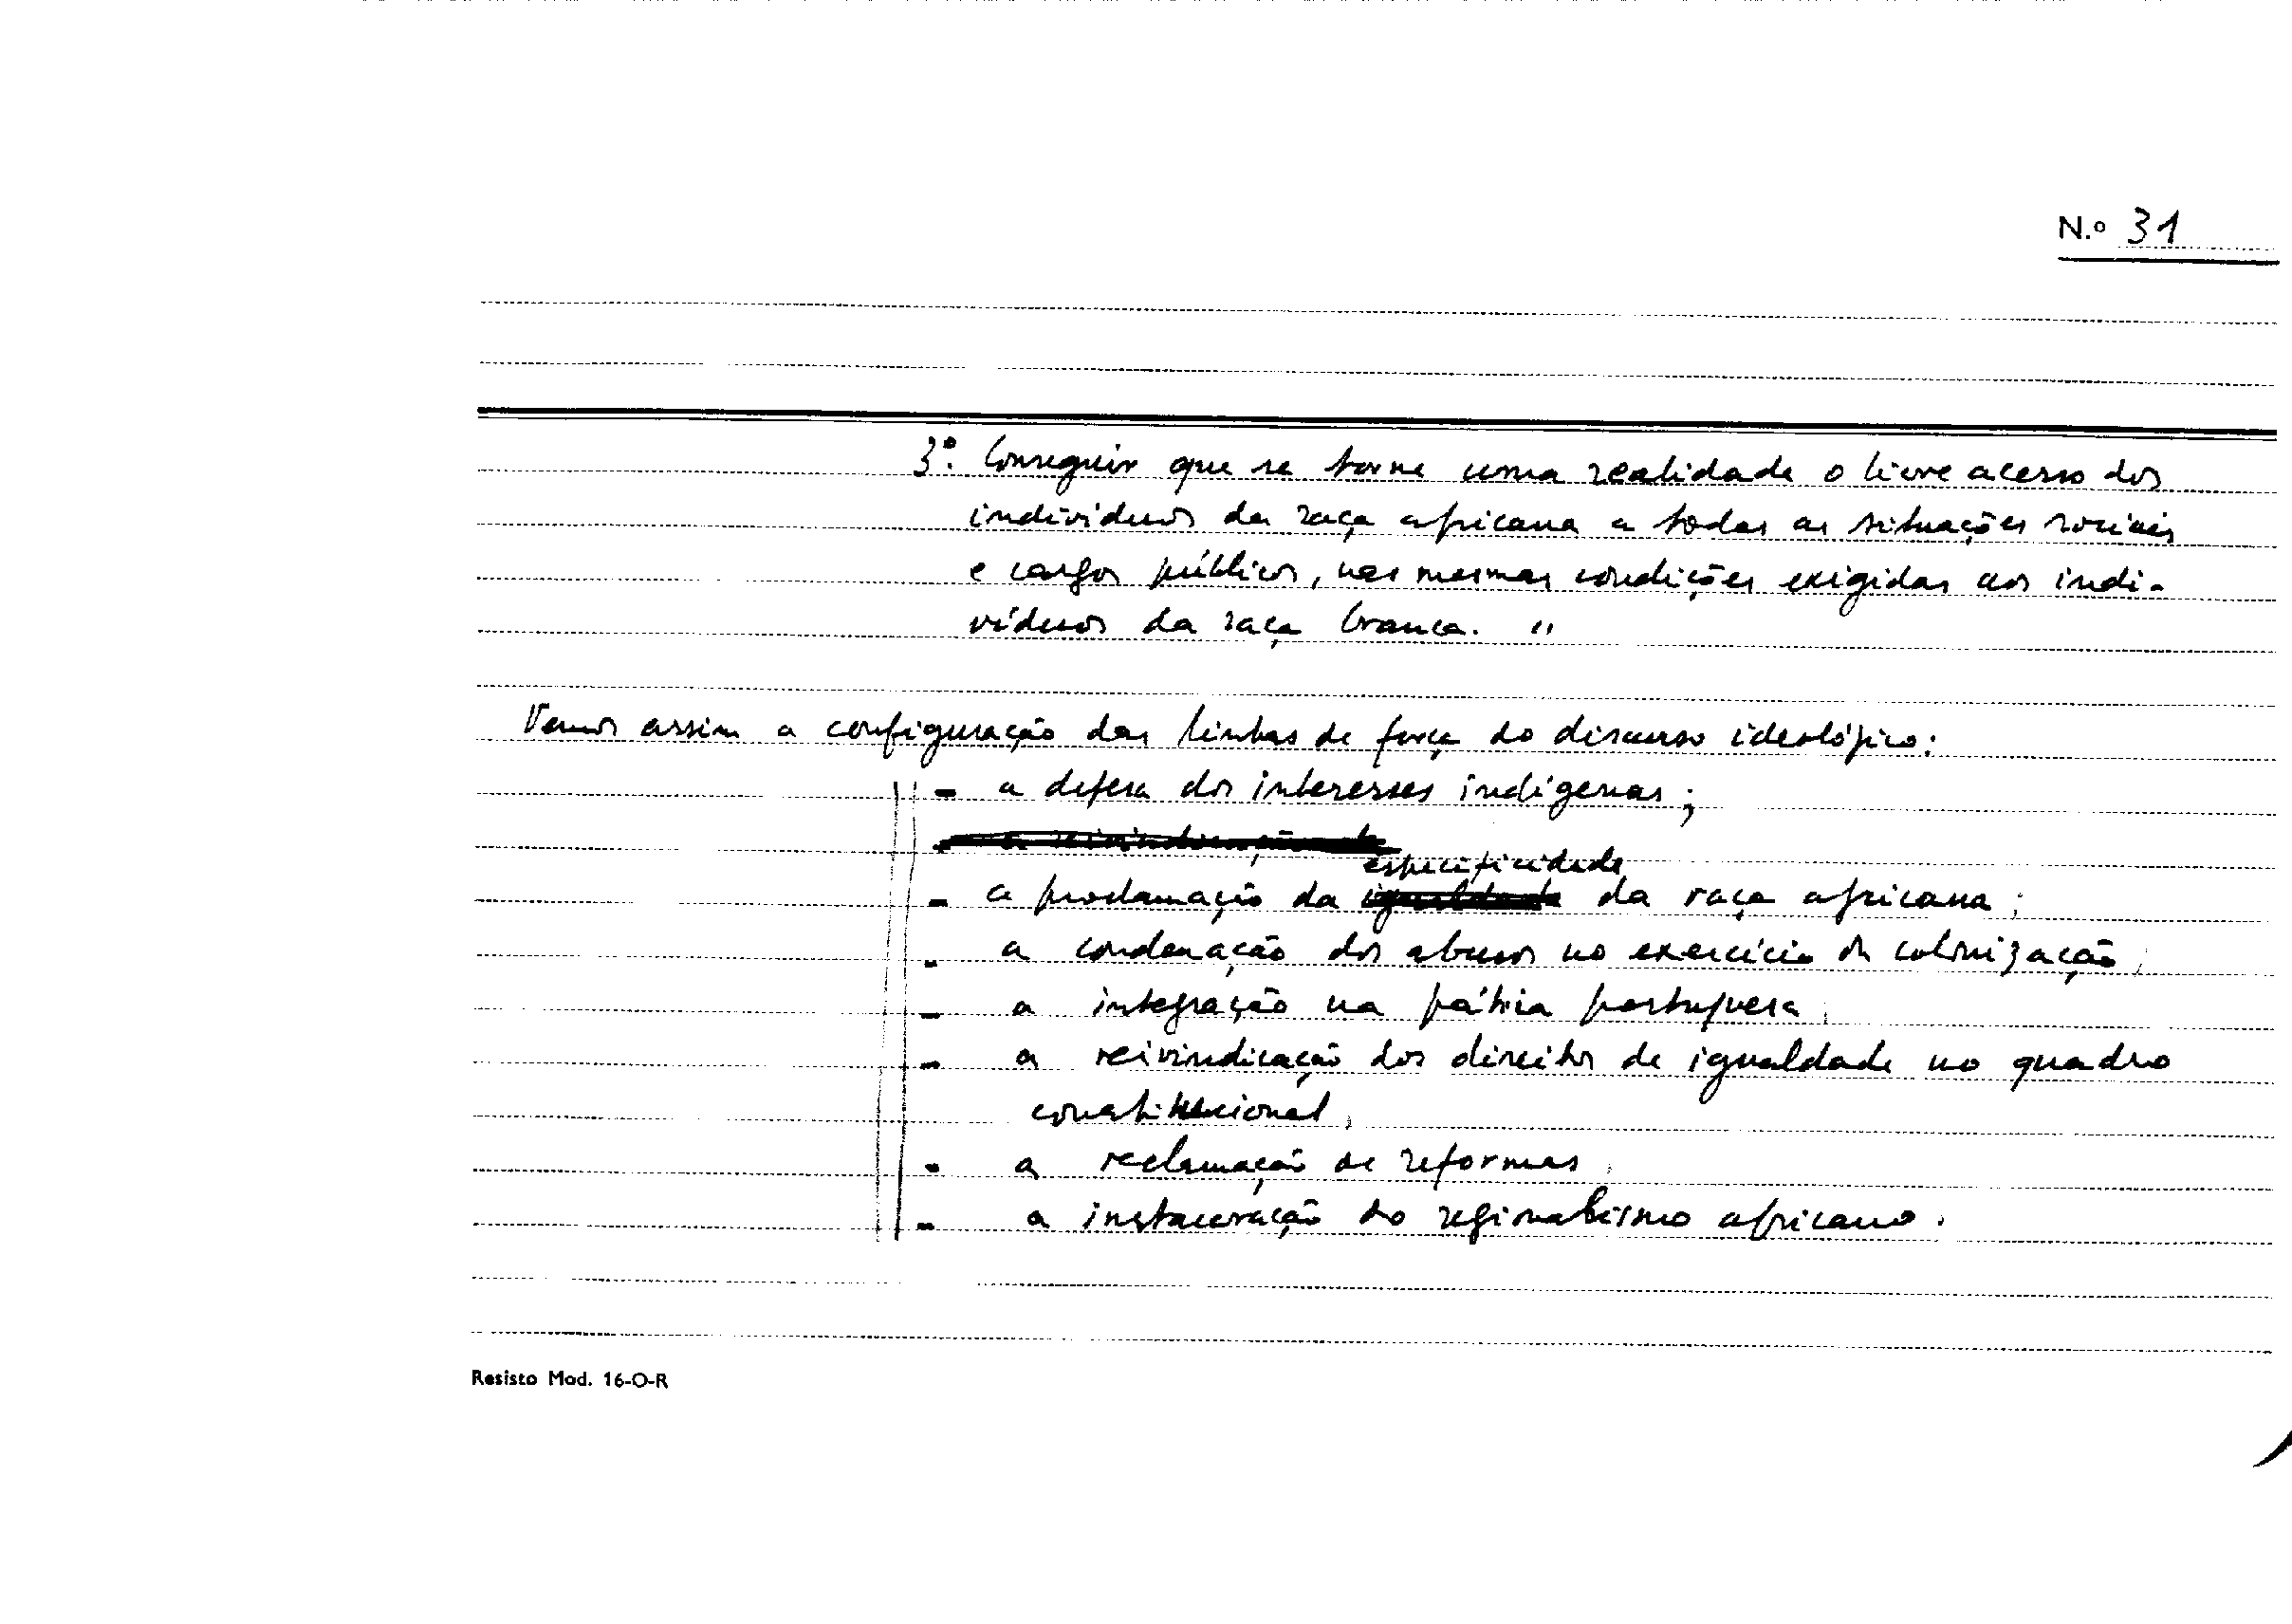 N.º 31
3º. Conseguir que se torne uma realidade o livre acesso dos
indivíduos da raça africana a todas as situações sociais
e cargos públicos, nas mesmas condições exigidas aos indi-
víduos da raça branca. "
Vemos assim a configuração das linhas de força do discurso ideológico:
- a defesa dos interesses indígenas;
- a reivindicação de
especificidade
- a proclamação da igualdade da raça africana;
- a condenação dos abusos no exercício da colonização;
- a integração na pátria portuguesa;
- a reivindicação dos direitos de igualdade no quadro
constitucional;
- a reclamação de reformas;
- a instauração do regionalismo africano.
Resisto Mod. 16-O-R